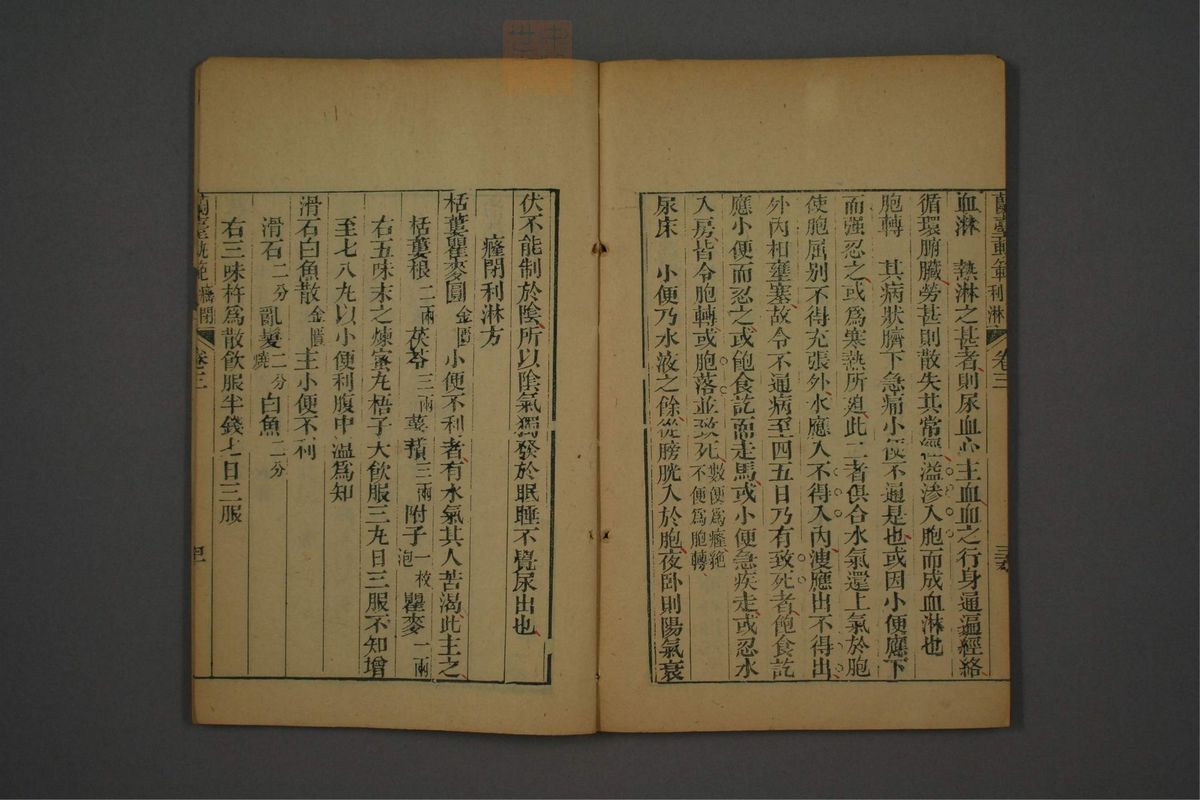 蘭臺軌範 利淋 卷三
血淋 熱淋之甚者則尿血心主血血之行身通遍經絡
循環腑臟勞甚則散失其常經溢滲入胞而成血淋也
胞轉 其病狀臍下急痛小便不通是也或因小便應下
而强忍之或爲寒熱所迫此二者俱合水氣還上氣於胞
使胞屈别不得充張外水應入不得入內溲應出不得出
外內相壅塞故令不通病至四五日乃有致死者飽食訖
應小便而忍之或飽食訖而走馬或小便急疾走或忍水
入房皆令胞轉或胞落並致死 數便爲癃絶不便爲胞轉
尿床 小便乃水液之餘從膀胱入於胞夜卧則陽氣衰
伏不能制於陰所以陰氣獨發於眠睡不覺尿出也
癃閉利淋方
栝蔞瞿麥圓 金匱 小便不利者有水氣其人苦渴此主之
栝蔞根 二兩 茯苓 三兩 薯蕷 三兩 附子 一枚泡 瞿麥 一兩
右五味末之煉蜜丸梧子大飲服三丸日三服不知增
至七八丸以小便利腹中溫爲知
滑石白魚散 金匱 主小便不利
滑石 二分 亂髮 二分燒 白魚 二分
右三味杵爲散飲服半錢匕日三服
蘭臺軌範 癃閉 卷三